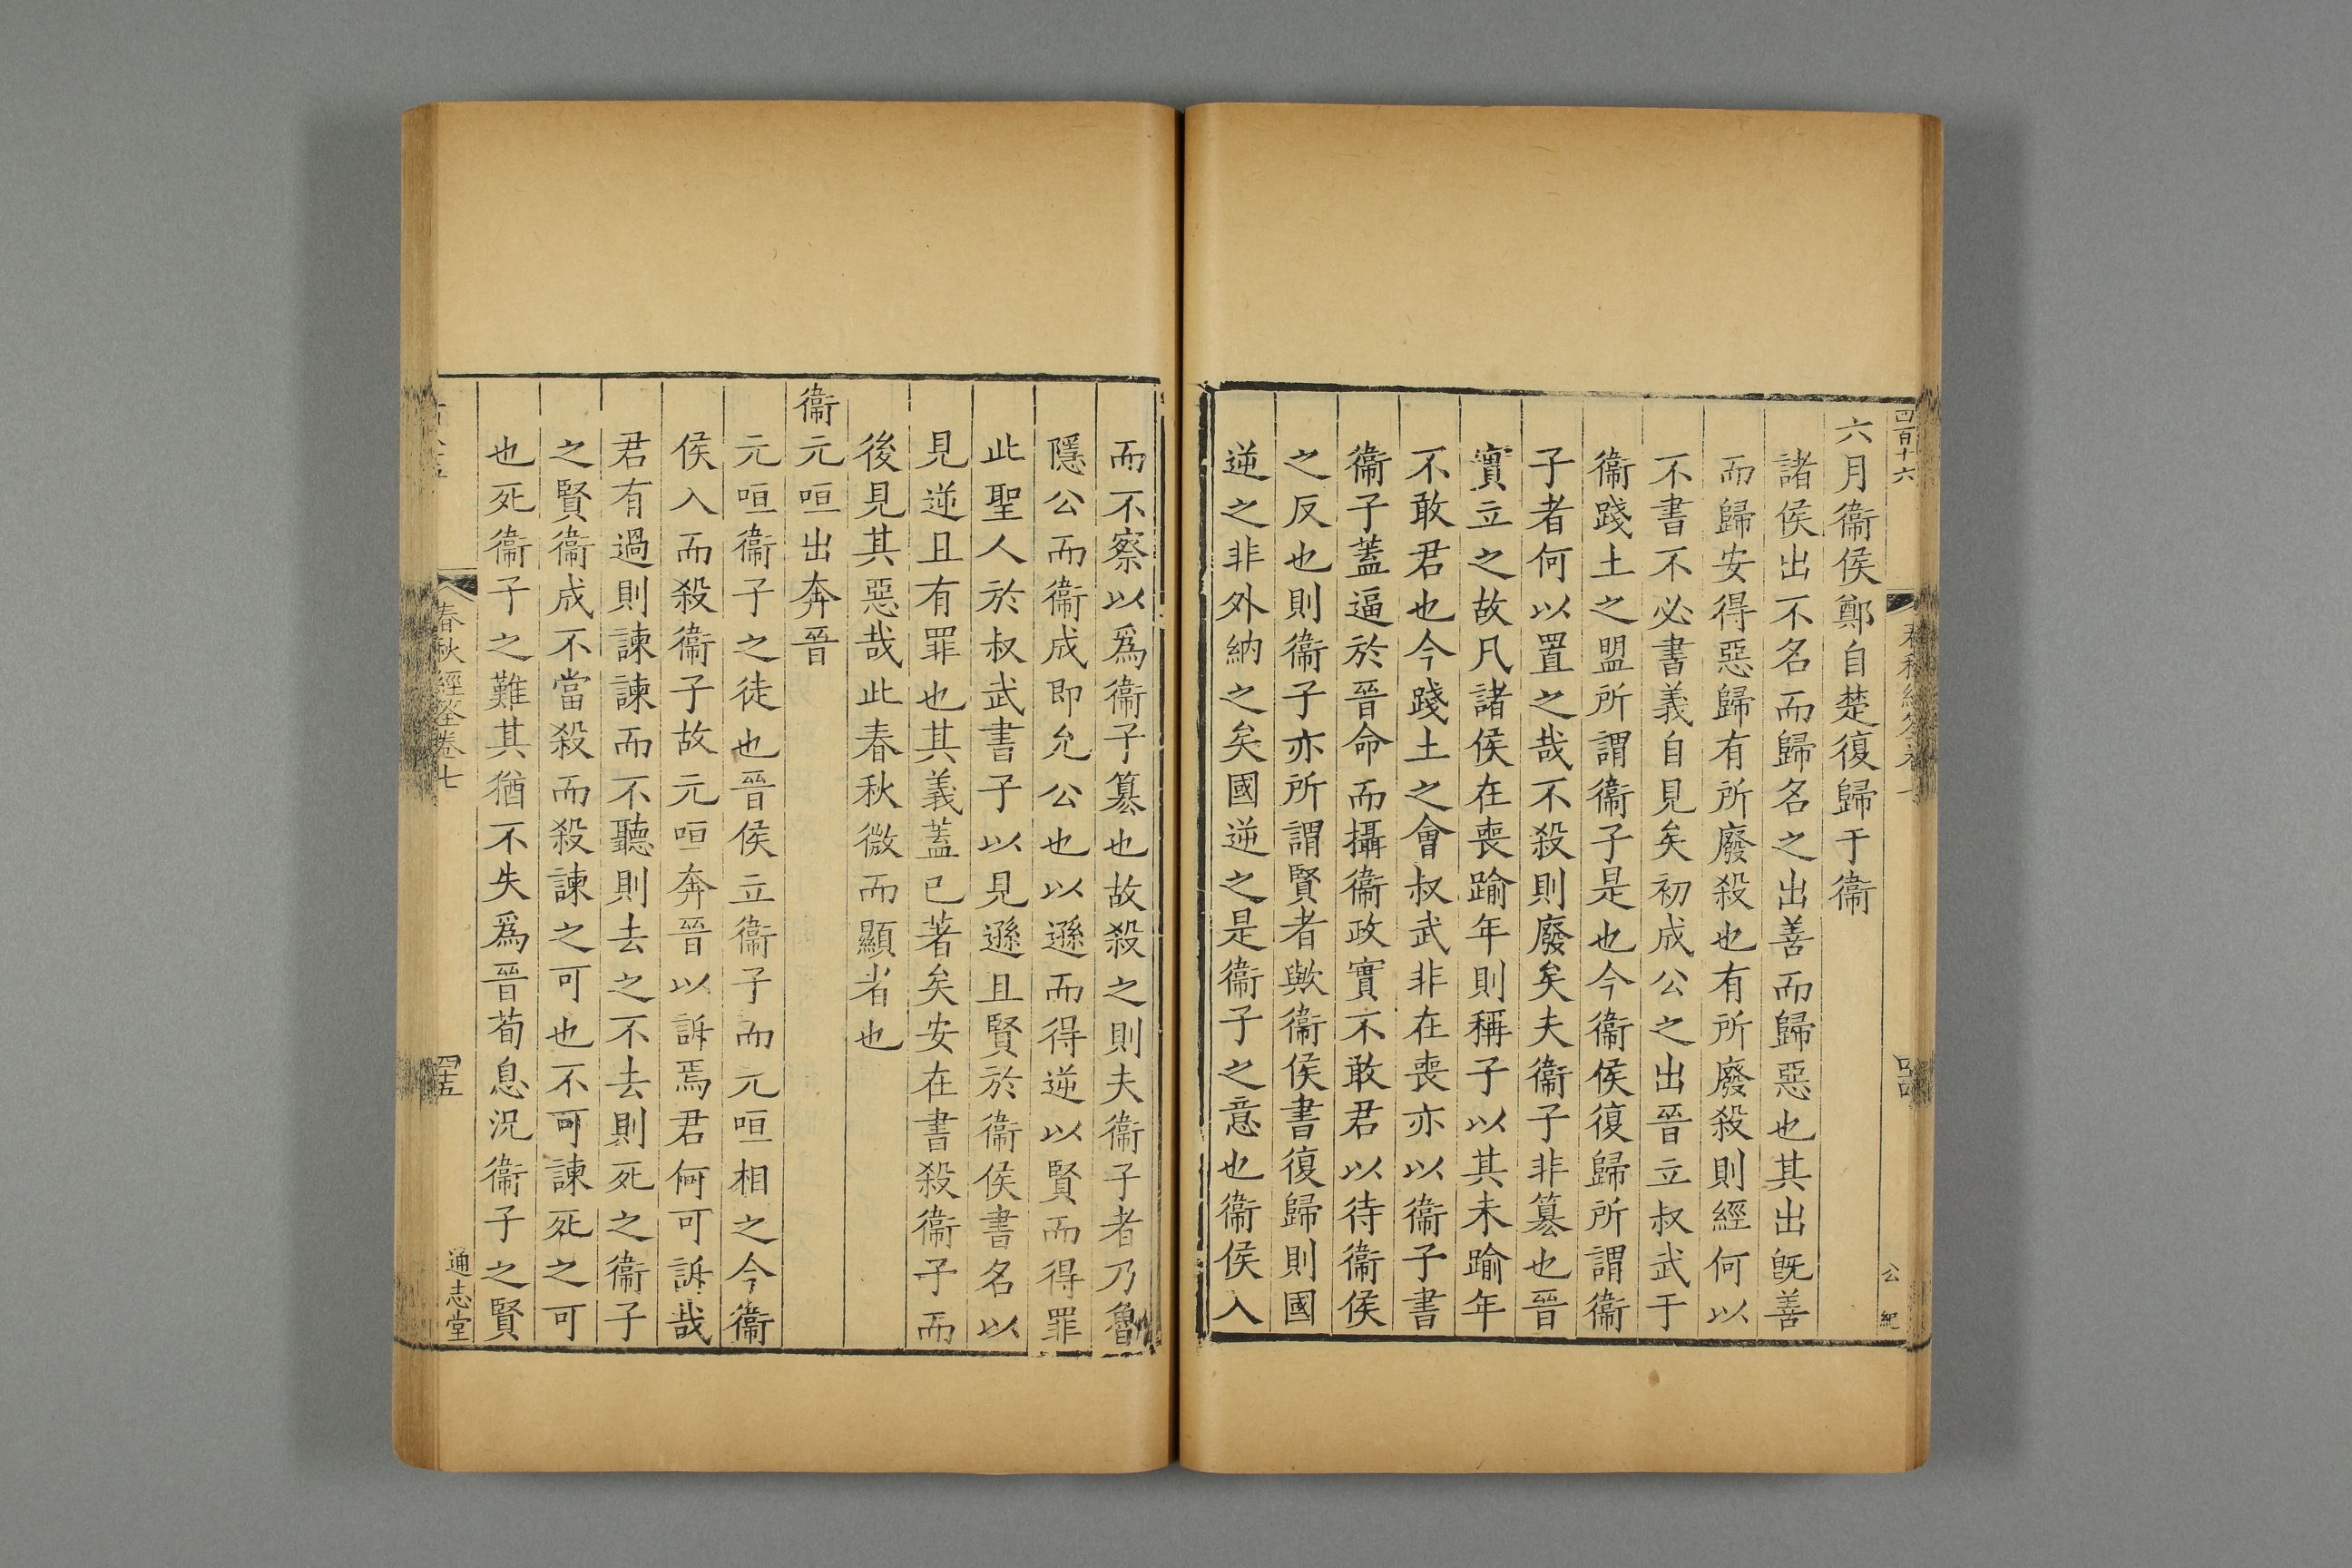 四百十六
六月衞侯鄭自楚復歸于衞
諸侯出不名而歸名之出善而歸惡也其出旣善
而歸安得惡歸有所廢殺也有所廢殺則經何以
不書不必書義自見矣初成公之出晉立叔武于
衞踐土之盟所謂衞子是也今衞侯復歸所謂衞
子者何以置之哉不殺則廢矣夫衞子非篡也晉
實立之故凡諸侯在喪踰年則稱子以其未踰年
不敢君也今踐土之會叔武非在喪亦以衞子書
衞子蓋逼於晉命而攝衞政實不敢君以待衞侯
之反也則衞子亦所謂賢者歟衞侯書復歸則國
逆之非外納之矣國逆之是衞子之意也衞侯入
而不察以爲衞子篡也故殺之則夫衞子者乃魯
隱公而衞成即允公也以遜而得逆以賢而得罪
此聖人於叔武書子以見遜且賢於衞侯書名以
見逆且有罪也其義蓋已著矣安在書殺衞子而
後見其惡哉此春秋微而顯者也
衞元咺出奔晉
元咺衞子之徒也晉侯立衞子而元咺相之今衞
侯入而殺衞子故元咺奔晉以訴焉君何可訴哉
君有過則諫諫而不聽則去之不去則死之衞子
之賢衞成不當殺而殺諫之可也不可諫死之可
也死衞子之難其猶不失爲晉荀息況衞子之賢
春秋經筌卷七
四十五
通志堂